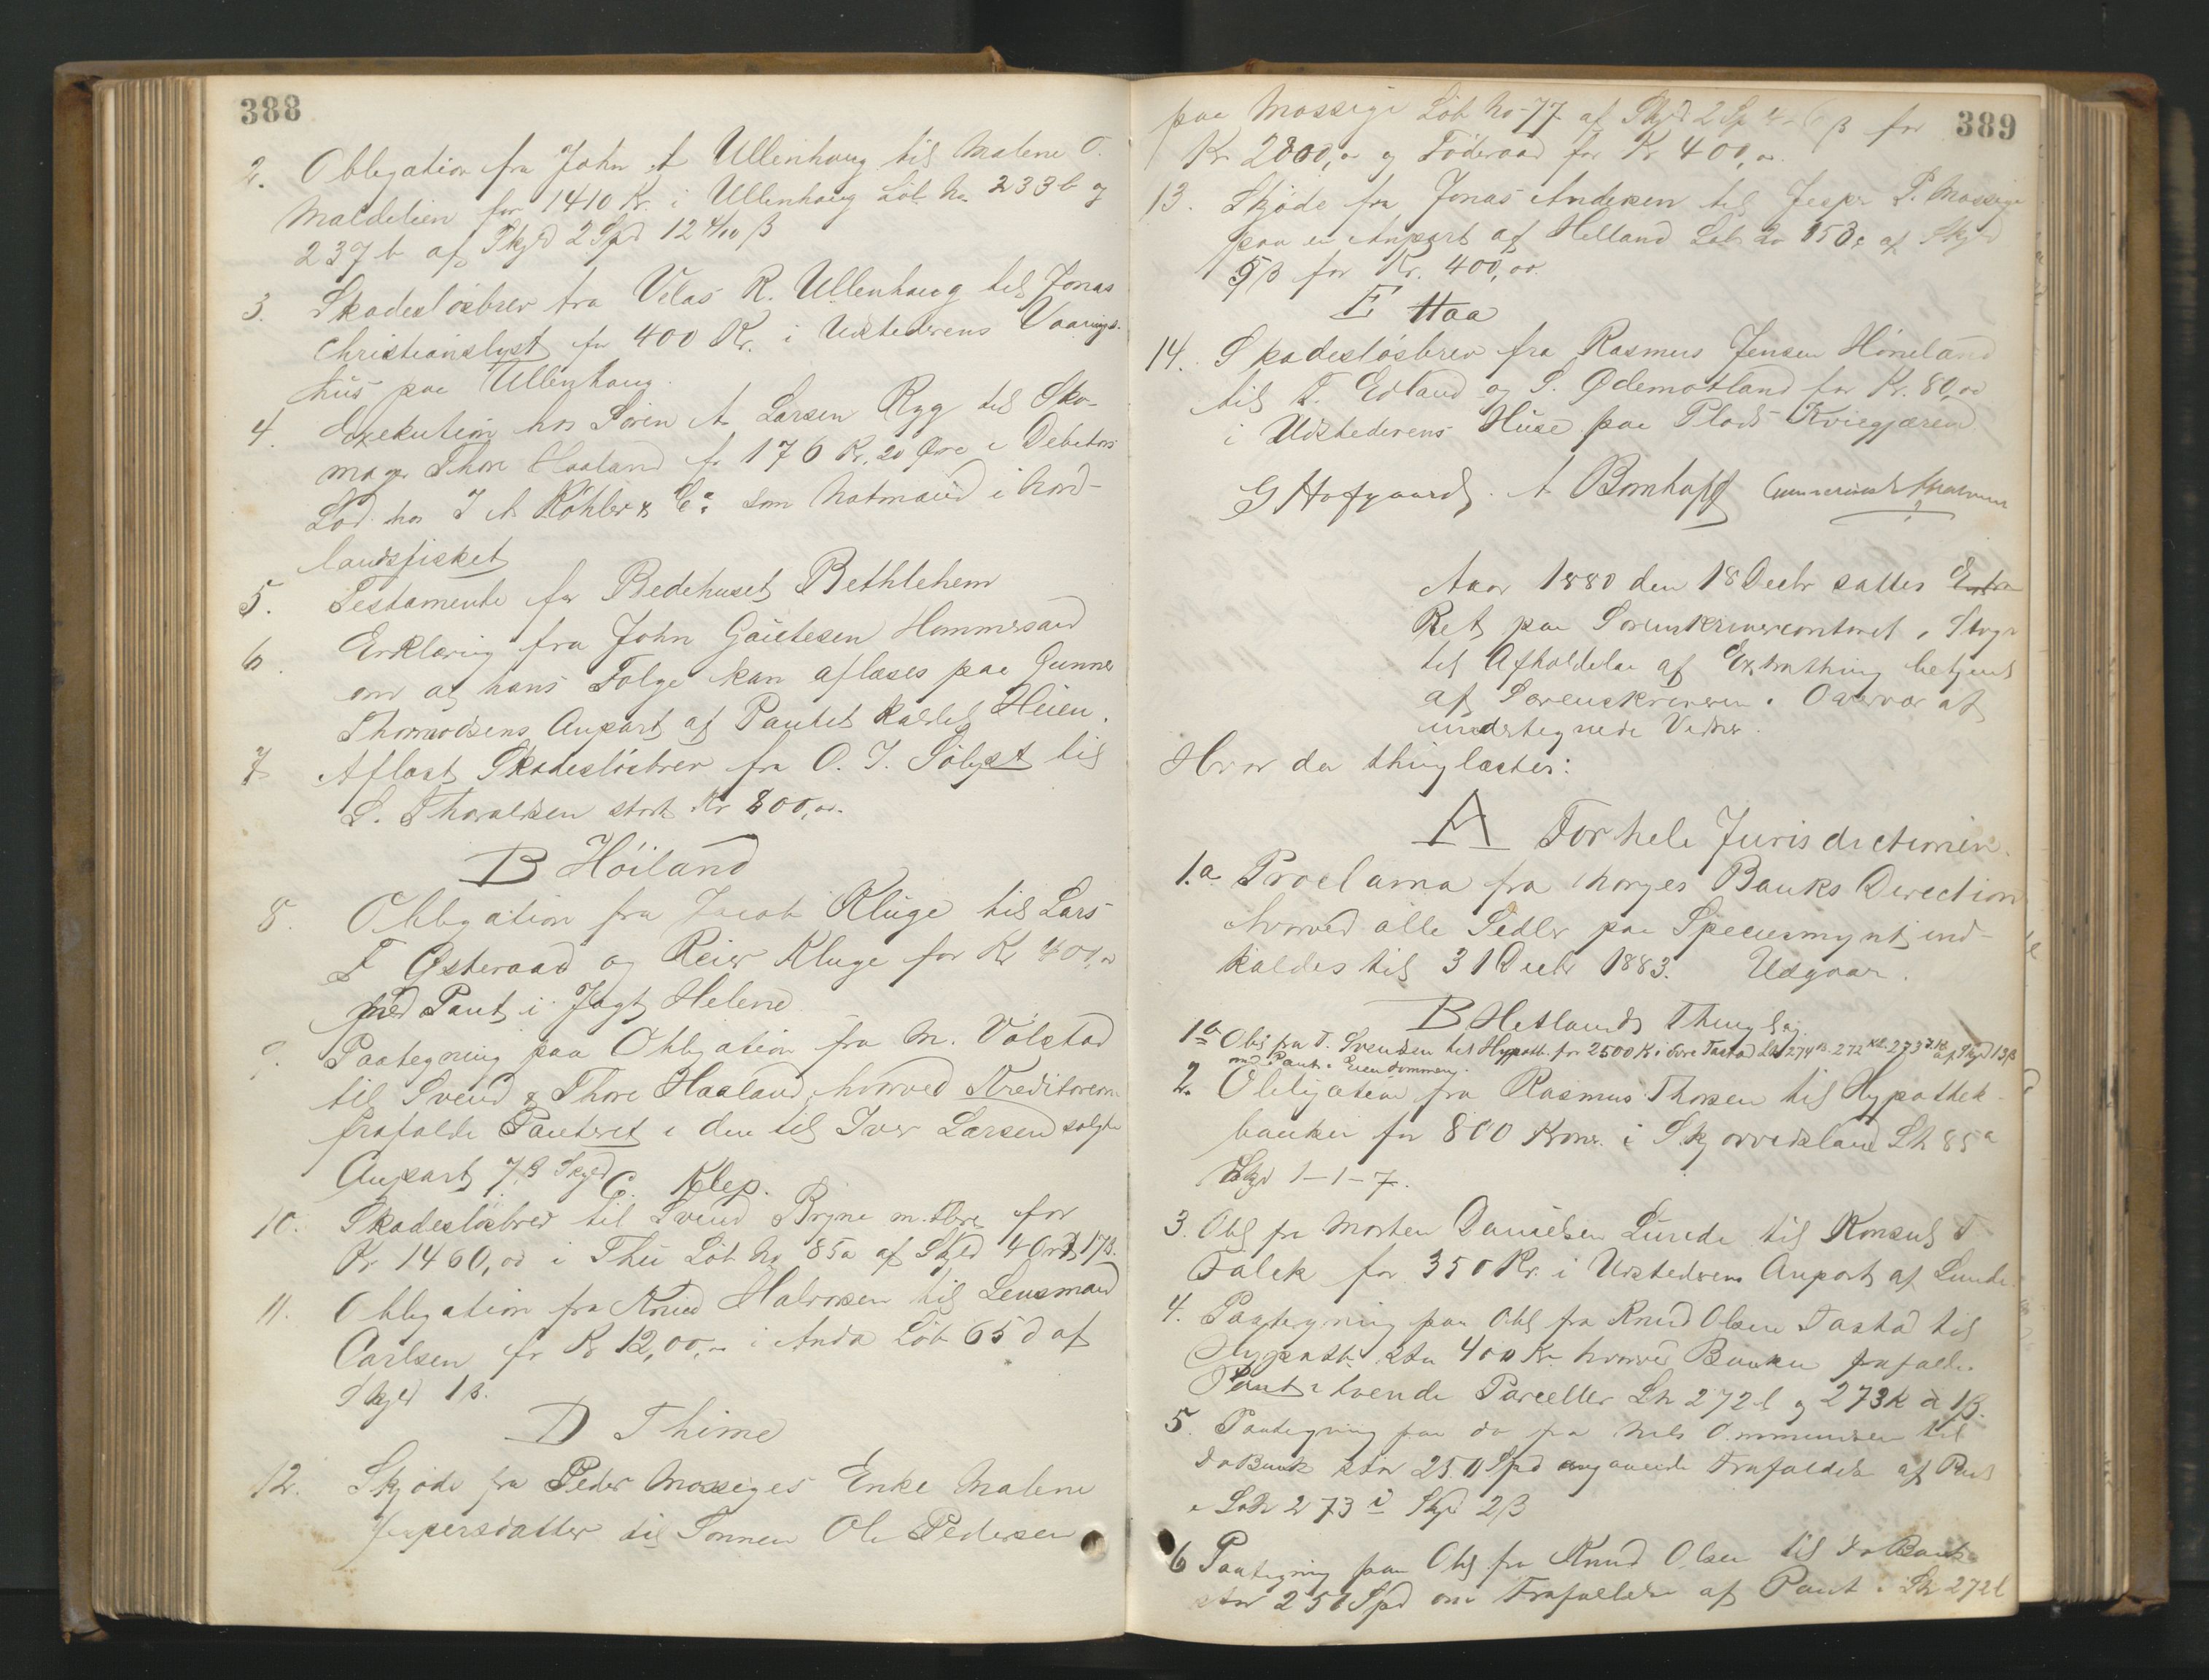 388
2. Obligation fra John A Ullenhaug til Malene O.
Maldelien for 1410 Kr. i Ullenhaug Löb No 233b og
237b af Skyld 2 Spd 12 4/10 β
3. Skadeslösbrev fra Velas R. Ullenhaug til Jonas
Christianslyst for 400 Kr. i Udstederens Vaanings-
hus paa Ullenhaug.
4. Exekution hos Sören A Larsen Ryg til Sko-
mager Thore Haaland for 176 Kr. 20 Öre i Debitors
Lod hos J A Köhler & Co som Notmand i Nord-
landsfisket
5. Testamente for Bedehuset Bethlehem
6. Erklæring fra John Gautesen Hommersand
om at hans Folge kan aflæses paa Gunner
Thormodsens Anpart af Pantet kaldet Heien.
7 Aflæst Skadeslösbrev fra O. T. Sölyst til
L. Thoraldsen stort Kr 800,00.
B Höiland
8. Obligation fra Jacob Kluge til Lars
T Østeraad og Reier Kluge for Kr 401,00
med Pant i Jagt Helene
9. Paategning paa Obligation fra M. Völstad
til Svend & Thore Haaland, hvorved Kreditorerne
frafalde Panteret i den til Iver Larsen solgte
Anpart 7 β Skyld
C. Klep.
10. Skadeslösbrev til Svend Bryne m. flere for
Kr 1460,00 i Thu Löb No 85a af Skyld 4 Ort 17β.
11. Obligation fra Knud Halvorsen til Lensmand
Carlsen for Kr 12,00,00 i Anda Löb 65d af
Skyld 1β.
D Thime
12. Skjöde fra Peder Mossiges Enke Malene
Jespersdatter til Sönnen Ole Pedersen
389
paa Mossige Löb No 77 af Skyld 2 Sp β for
Kr 2800,00 og Föderaad for Kr 400,00.
13. Skjöde fra Jonas Andersen til Jesper P. Mossige
paa en Anpart af Helland Löb No 153c af Skyld
5β for Kr. 400,00.
E Haa
14. Skadeslösbrev fra Rasmus Jensen Höneland
til T. Edland og S. Ødemotland for Kr. 80,00
i Udstederens Huse paa Plads Kviegjæren.
G Hofgaard. A Bomhoff
Aar 1880 den 18 Decbr sattes Extra
Ret paa Sorenskrivercontoret,
til Afholdelse af Extrathing betjent
af Sorenskriveren. Overvar af
undertegnede Vidner.
Hvor da thinglæstes:
A For hele Jurisdictionen.
1.a Proclama fra Norges Banks Direction
hvorved alle Sedler paa Speciesmynt ind-
kaldes til 31 Decbr 1883. Udgaar.
B Hetlands Thinglag.
1b Obl fra T. Svendsen til Hypoth. for 2500 Kr i Tastad Lb 274 272 273 af Skyld 13β
med Pant i Eiendommen.
2. Obligation fra Rasmus Thorsen til Hypothek-
banken for 800 Kroner i Skjorvedsland Lb 85a
Skyld 1-1-7.
3. Obl fra Morten Danielsen Lunde til Konsul T
Falck for 350 Kr. i Udstederens Anpart af Lunde.
4. Paategning paa Obl fra Knud Olsen Tastad til
Hypoth. stor 400 Kr hvorved Banken frafalder
Pant i tvende Parceller Lb 272l og 273k à 1β.
5. Paategning paa do fra Nils Ommundsen til
do Bank stor 250 Spd angaaende Frafaldelse af Pant
i Lb 273i Skyld 2β
6 Paategning paa Obl fra Knud Olsen til do Bank
stor 250 Spd om Frafaldelse af Pant i Lb 272l